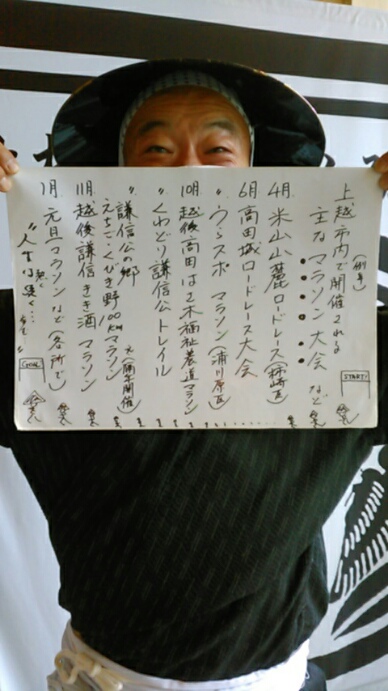 上越市内で開催される(例年)
主なマラソン大会など
START!
4月 米山山麓ロードレース(柿崎区)
6月 高田城ロードレース大会
〃 うらスポマラソン(浦川原区)
10月 越後高田はつらつ福祉巷道マラソン
〃 くわどり謙信公トレイル
〃 謙信公の郷
えちご・くびき野100kmマラソン
※(隔年開催)
11月 越後謙信きき酒マラソン
1月 元旦マラソンなど(各所で)
〃人生は長く…
GOAL